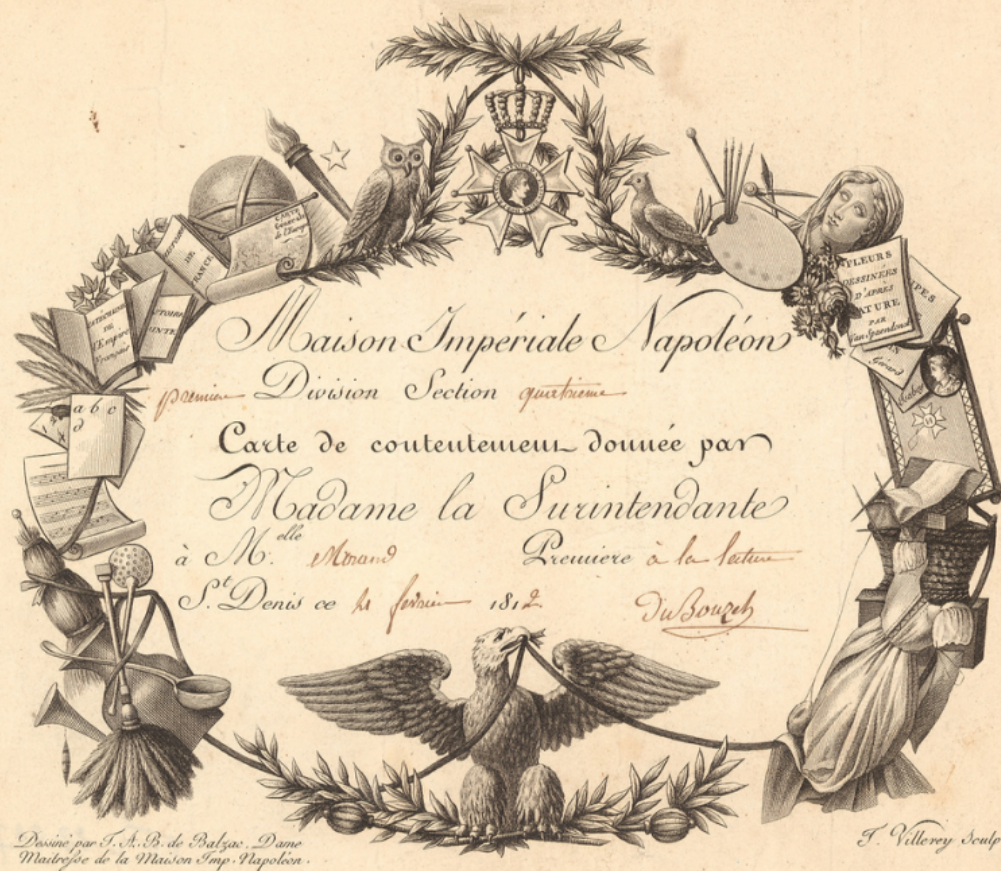 CARTE
Générale
de l'Europe
DE
FRANCE
CATÉCHISME
DE
l'Empire
Français
a b c
d
FLEURS
DESSINÉES
D'APRÈS
NATURE
PAR
Van Spaendonck
Gérard
Maison Impériale Napoléon
première Division Section quatrieme
Carte de contentement donnée par
Madame la Surintendante
à M.elle Morand Premiere à la lecture
St. Denis ce février 1812 Du Bouzet
Dessiné par T. A. B. de Balzac, Dame
Maitresse de la Maison Imp. Napoléon.
F. Villerey Sculp